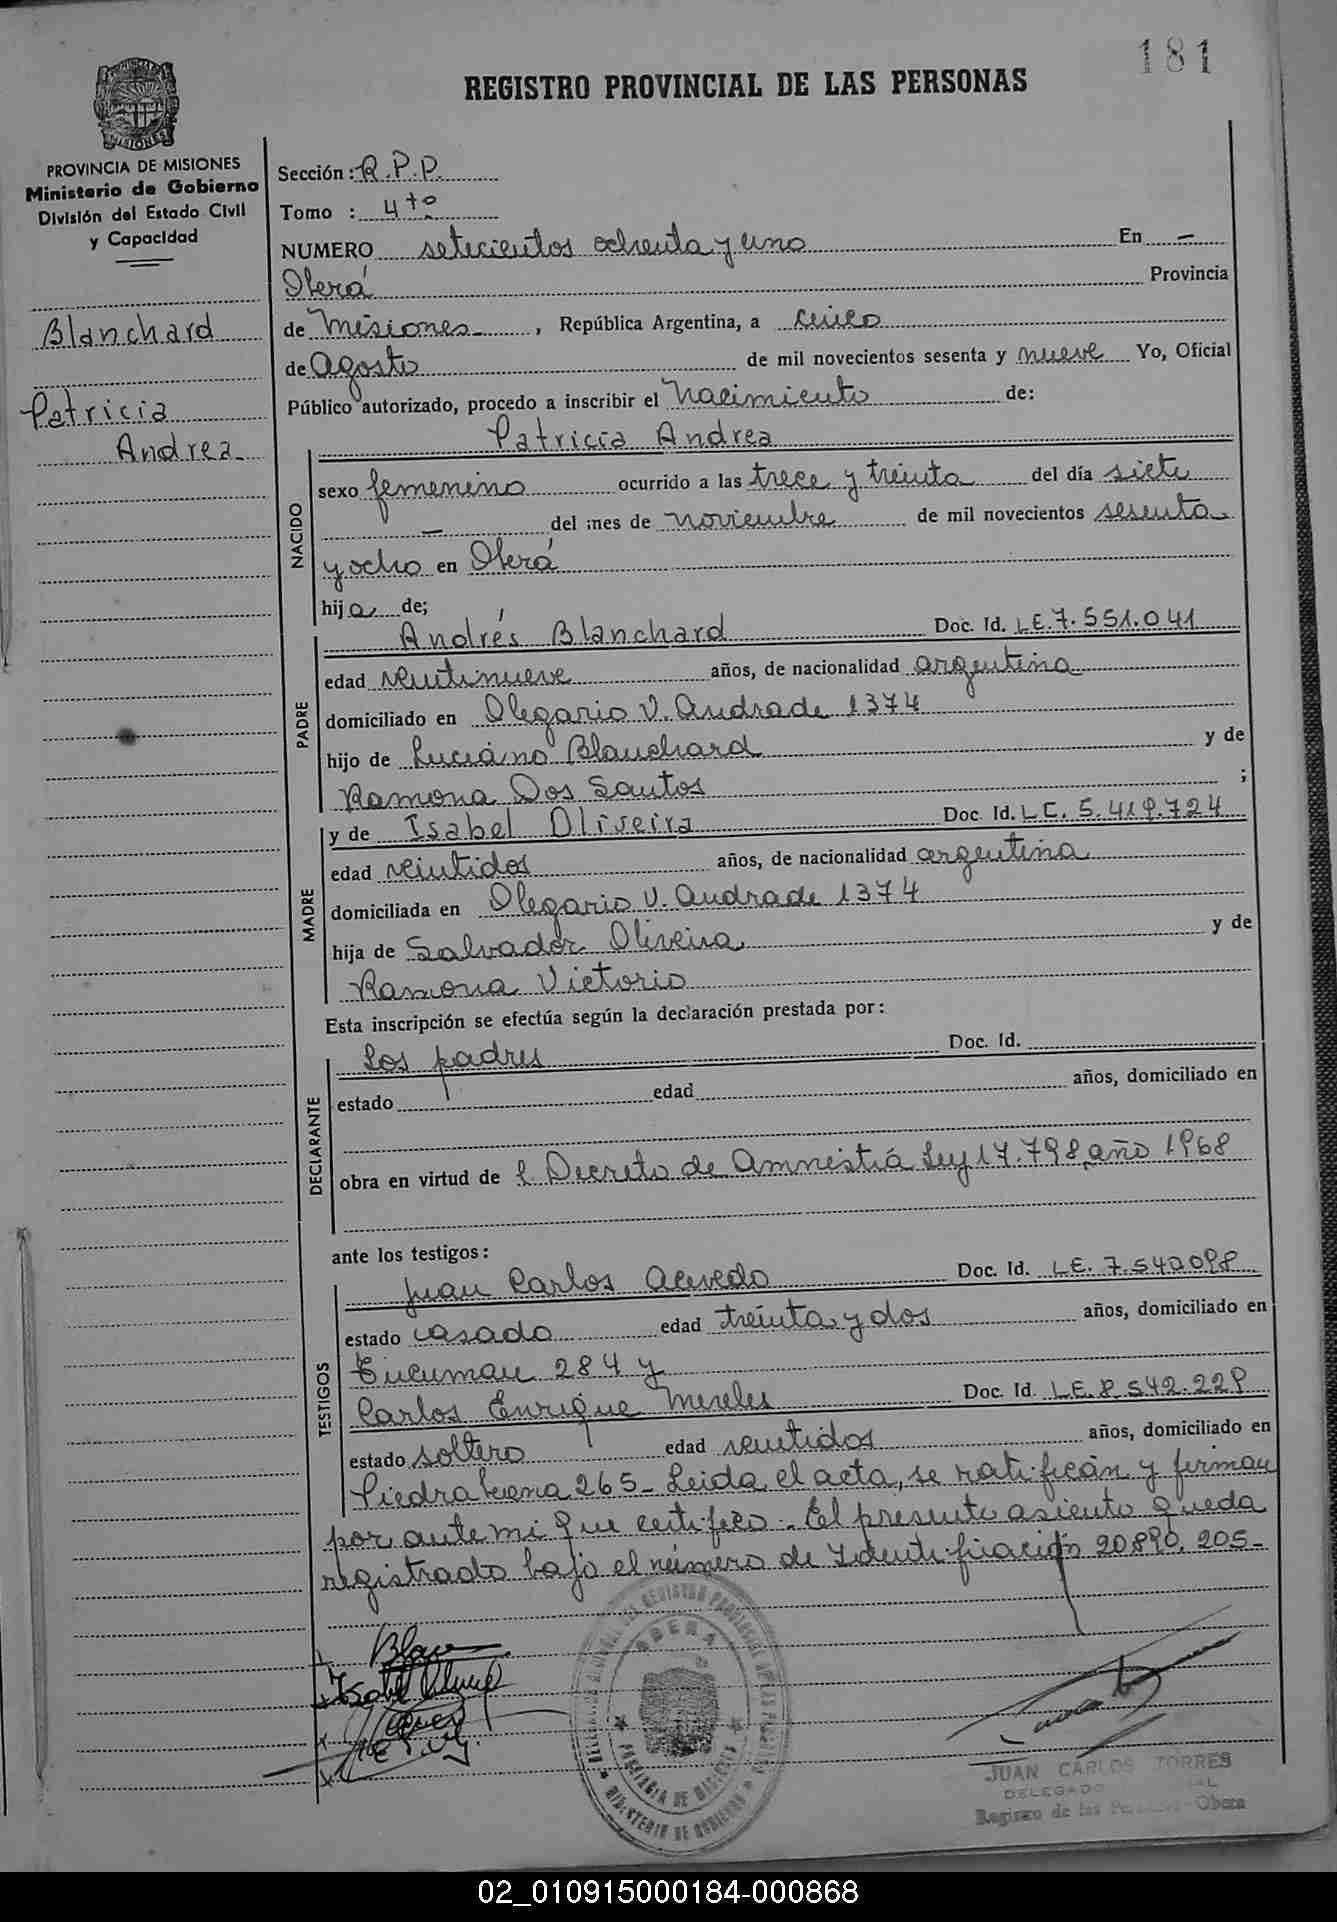 181
REGISTRO PROVINCIAL DE LAS PERSONAS
PROVINCIA DE MISIONES
Ministerio de Gobierno
División del Estado Civil
y Capacidad
Blanchard
Patricia
Andrea
Sección: R.P.P.
Tomo : 4to
NUMERO setecientos ochenta y uno En —
Oberá Provincia
de Misiones, República Argentina, a cinco
de Agosto de mil novecientos sesenta y nueve Yo, Oficial
Público autorizado, procedo a inscribir el Nacimiento de:
Patricia Andrea
NACIDO
sexo femenino ocurrido a las trece y treinta del día siete
— del mes de noviembre de mil novecientos sesenta
y ocho en Oberá
hija de;
PADRE
Andrés Blanchard Doc. Id. L.E. 7.551.041
edad veintinueve años, de nacionalidad argentina
domiciliado en Olegario V. Andrade 1374
hijo de Luciano Blanchard y de
Ramona Dos Santos ;
MADRE
y de Isabel Oliveira Doc. Id. L.C. 5.419.724
edad veintidos años, de nacionalidad argentina
domiciliada en Olegario V. Andrade 1374
hija de Salvador Oliveira y de
Ramona Victorio
Esta inscripción se efectúa según la declaración prestada por:
DECLARANTE
Los padres Doc. Id.
estado edad años, domiciliado en
obra en virtud de l Decreto de Amnistía Ley 17.798 año 1968
ante los testigos:
TESTIGOS
Juan Carlos Acevedo Doc. Id. L.E. 7.540.098
estado casado edad treinta y dos años, domiciliado en
Tucuman 284 y
Carlos Enrique Meneles Doc. Id. L.E. 8.542.229
estado soltero edad veintidos años, domiciliado en
Piedrabuena 265 - Leida el acta, se ratifican y firman
por ante mi que certifico. El presente asiento queda
registrado bajo el número de Identificación 20.890.205-
Isabel
OBERA
PROVINCIA DE MISIONES
MINISTERIO DE GOBIERNO
JUAN CARLOS TORRES
DELEGADO
Registro de las Obera
02_010915000184-000868